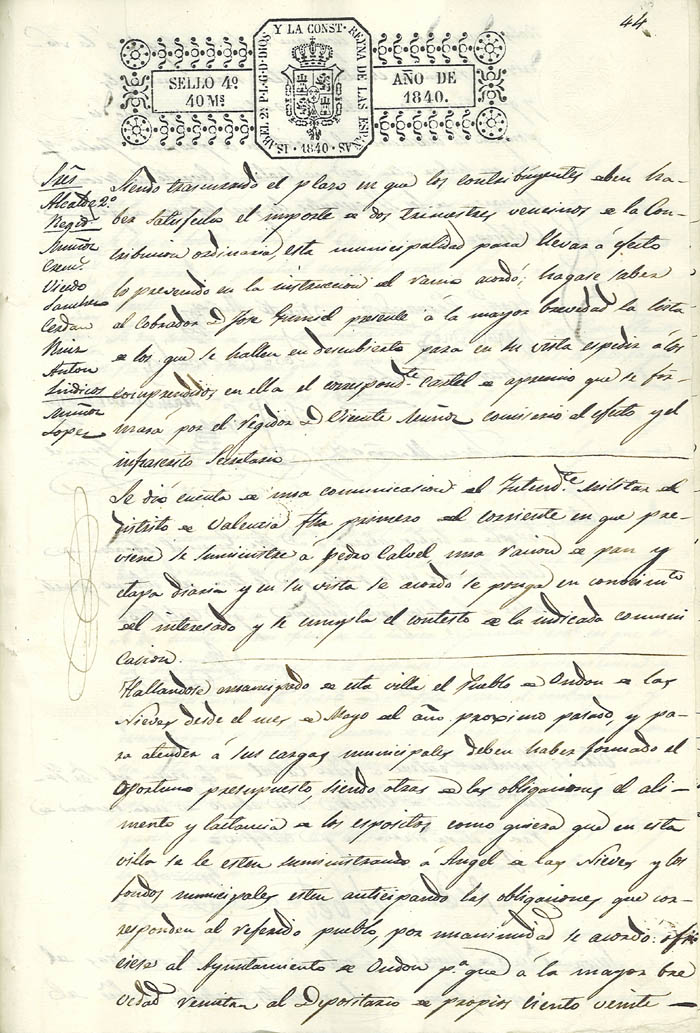 44
ISABEL 2ª P.L.G.D.DIOS Y LA CONST. REINA DE LAS ESPAÑAS
· 1840 ·
SELLO 4º
40 Ms
AÑO DE
1840.
Sres
Alcalde 2º
Regid.
Muñoz
Crem.
Oviedo
Sanchez
Cerdan
Ruiz
Anton
Sindicos
Muñoz
Lopez
Siendo trascurrido el plazo en que los contribuyentes deben ha-
ber satisfecho el importe de dos trimestres vencidos de la Con-
tribucion ordinaria, esta municipalidad para llevar á efecto
lo prevenido en la instruccion del ramo acordó; hagase saber
al Cobrador D. Jose presente á la mayor brevedad la lista
de los que se hallen en descubierto para en su vista espedir á los
comprendidos en ella el correspondte cartel de apremio que se for-
mara por el regidor D. Vicente Muñoz comisario al efecto y el
infrascrito Secretario
Se dió cuenta de una comunicacion del Intendte militar del
distrito de Valencia fha primero del corriente en que pre-
viene se suministre a Pedro Calvel una racion de pan y
etapa diaria y en su vista se acordó se ponga en conocimto
del interesado y se cumpla el contesto de la indicada comuni-
cacion.
Hallandose emancipado de esta villa el Pueblo de Ondon de las
Nieves desde el mes de Mayo del año proximo pasado, y pa-
ra atender á sus cargas municipales deben haber formado el
oportuno presupuesto, siendo otras de las obligaciones el ali-
mento y lactancia de los espositos, como quiera que en esta
villa se le esten suministrando á Angel de las Nieves y los
fondos municipales esten anticipando las obligaciones que cor-
responden al referido pueblo, por unanimidad se acordo: ofi-
ciese al Ayuntamiento de Ondon pª que á la mayor bre
vedad remitan al Depositario de propios ciento veinte